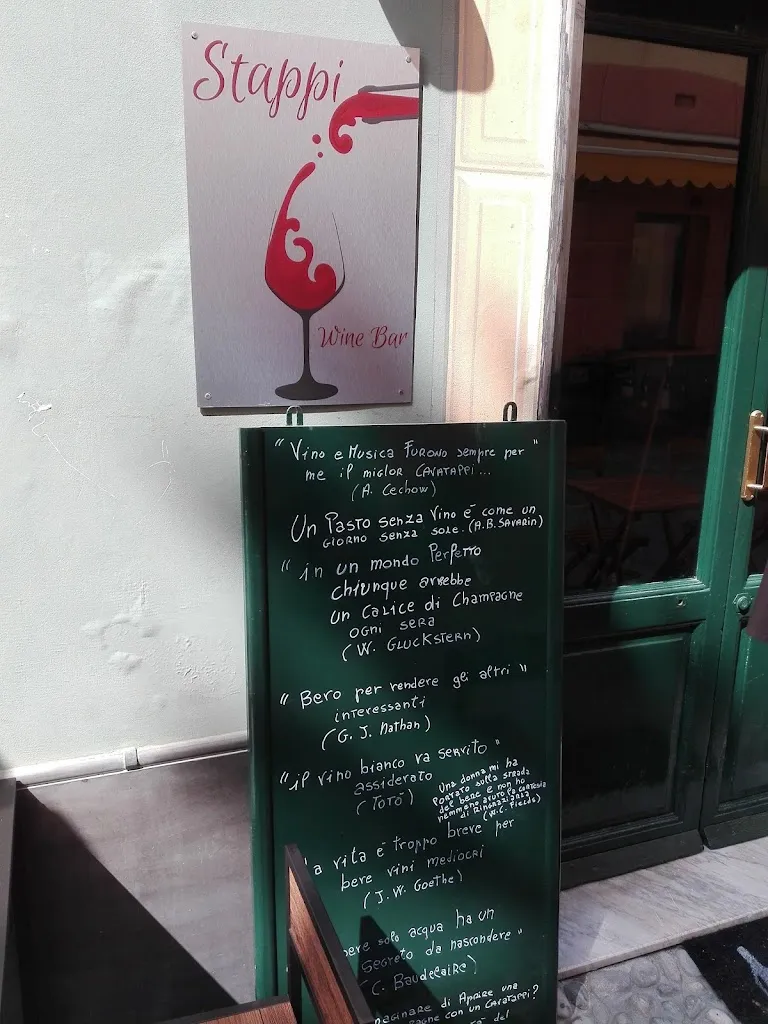 Stappi
Wine Bar
"Vino e Musica Furono sempre per"
me il miglior Cavatappi...
(A. Cechow)
Un Pasto senza Vino è come un
giorno senza sole. (A.B. Savarin)
"in un mondo Perfetto
chiunque avrebbe
un calice di Champagne
ogni sera
(W. Gluckstern)
"Bero per rendere gli altri"
interessanti
(G. J. Nathan)
"il vino bianco va servito"
assiderato
(Totò)
Una donna mi ha
Portato sulla strada
del bere e non ho
nemmeno avuto la cortesia
di ringraziarla
(W.C. Fields)
a vita è troppo breve per
bere vini mediocri
(J. W. Goethe)
bere solo acqua ha un
segreto da nascondere"
(C. Baudelaire)
maginare di Aprire una
pagne con un Cavatappi?
del